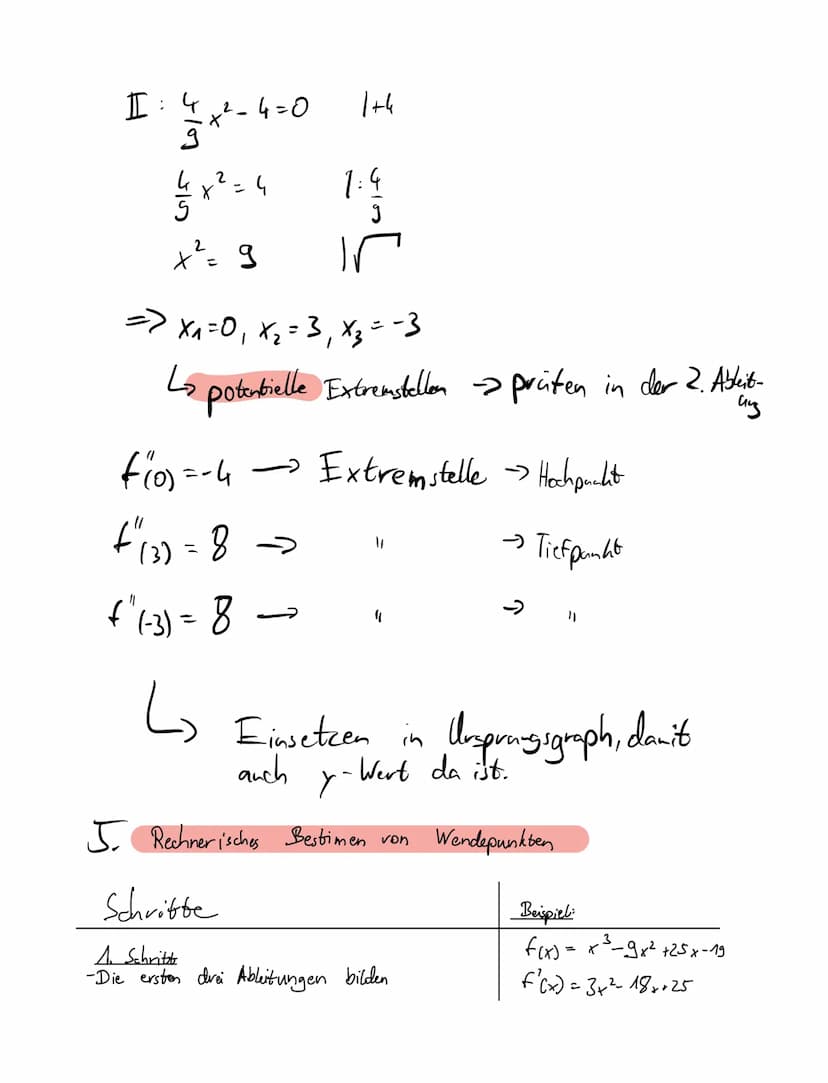 II : 4/9 x² - 4 = 0 |+4
4/9 x² = 4 |: 4/9
x² = 9 |√
=> x₁=0, x₂ = 3, x₃ = -3
↳ potentielle Extremstellen → prüfen in der 2. Ableit-
ung
f''(0) = -4 → Extremstelle → Hochpunkt
f''(3) = 8 → " → Tiefpunkt
f''(-3) = 8 → " → "
↳ Einsetzen in Ursprungsgraph, damit
auch y-Wert da ist.
5. Rechnerisches Bestimen von Wendepunkten
Schritte
Beispiel:
1. Schritt
-Die ersten drei Ableitungen bilden
f(x) = x³-9x²+25x-19
f'(x) = 3x²-18x+25